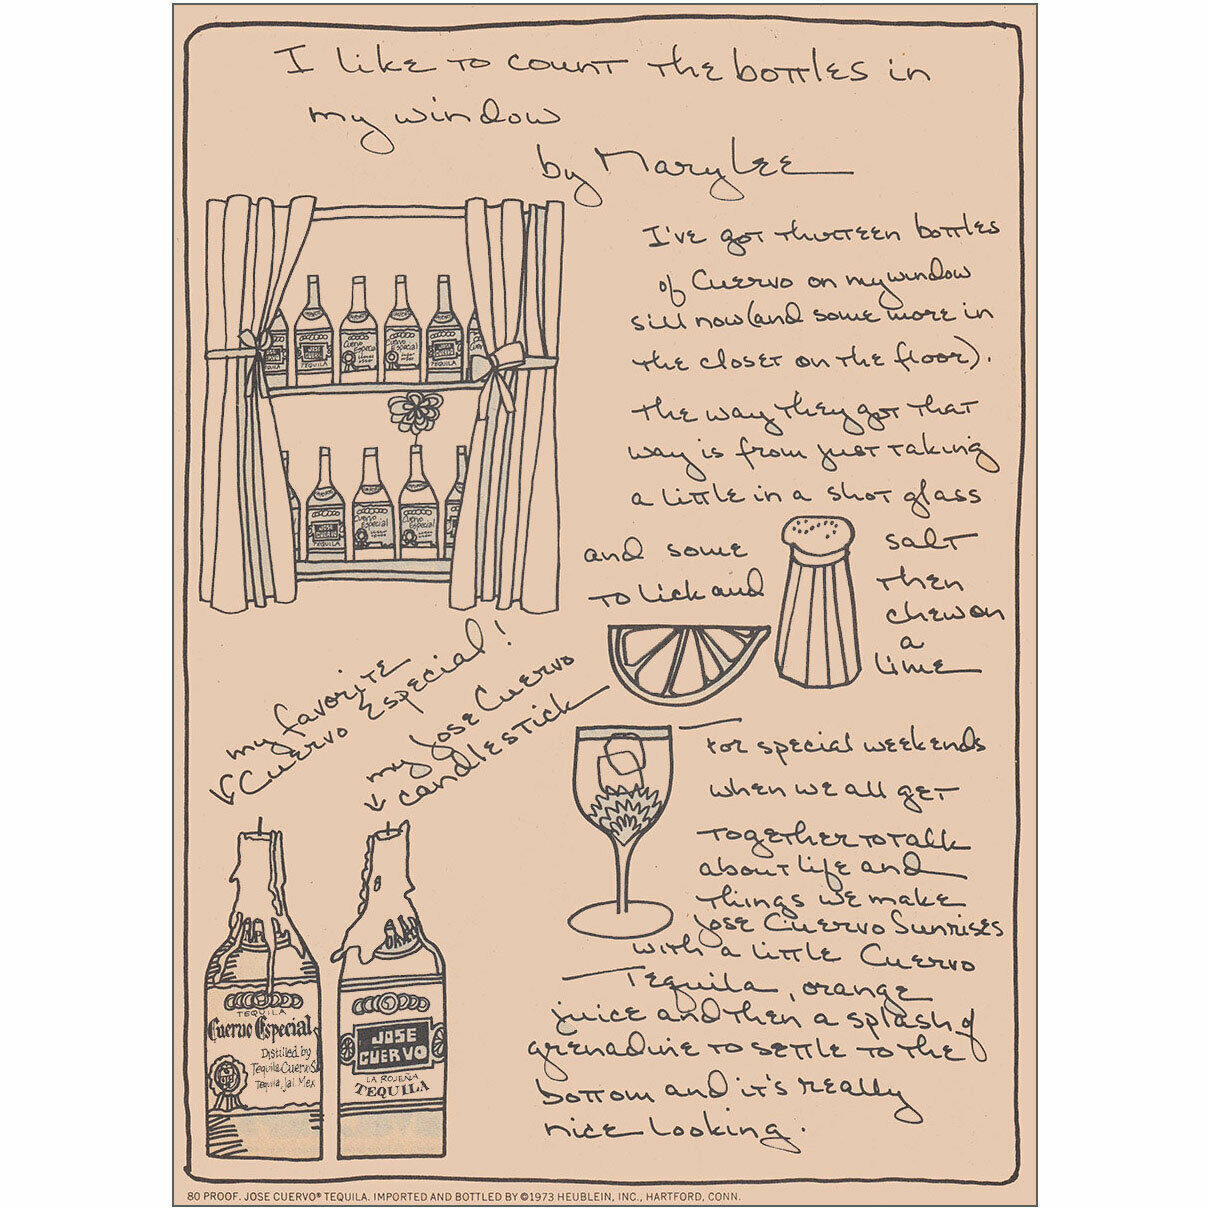 I like to count the bottles in
my window
by Mary Lee
I've got thirteen bottles
of Cuervo on my window
sill now (and some more in
the closet on the floor).
The way they got that
way is from just taking
a little in a shot glass
and some
to lick and
salt
then
chew on
a
lime
my favorite
Cuervo Especial!
my Jose Cuervo
candlestick
For special weekends
when we all get
together to talk
about life and
things we make
Jose Cuervo Sunrises
with a little Cuervo
Tequila, orange
juice and then a splash of
grenadine to settle to the
bottom and it's really
nice looking.
TEQUILA
Cuervo Especial
Distilled by
Tequila Cuervo S.
Tequila, Jal. Mex
JOSE
CUERVO
LA ROJEÑA
TEQUILA
JOSE
CUERVO
TEQUILA
Cuervo
Especial
Cuervo
Especial
JOSE
CUERVO
TEQUILA
JOSE
CUERVO
TEQUILA
Cuervo
Especial
Cuervo
Especial
80 PROOF. JOSE CUERVO® TEQUILA. IMPORTED AND BOTTLED BY ©1973 HEUBLEIN, INC., HARTFORD, CONN.